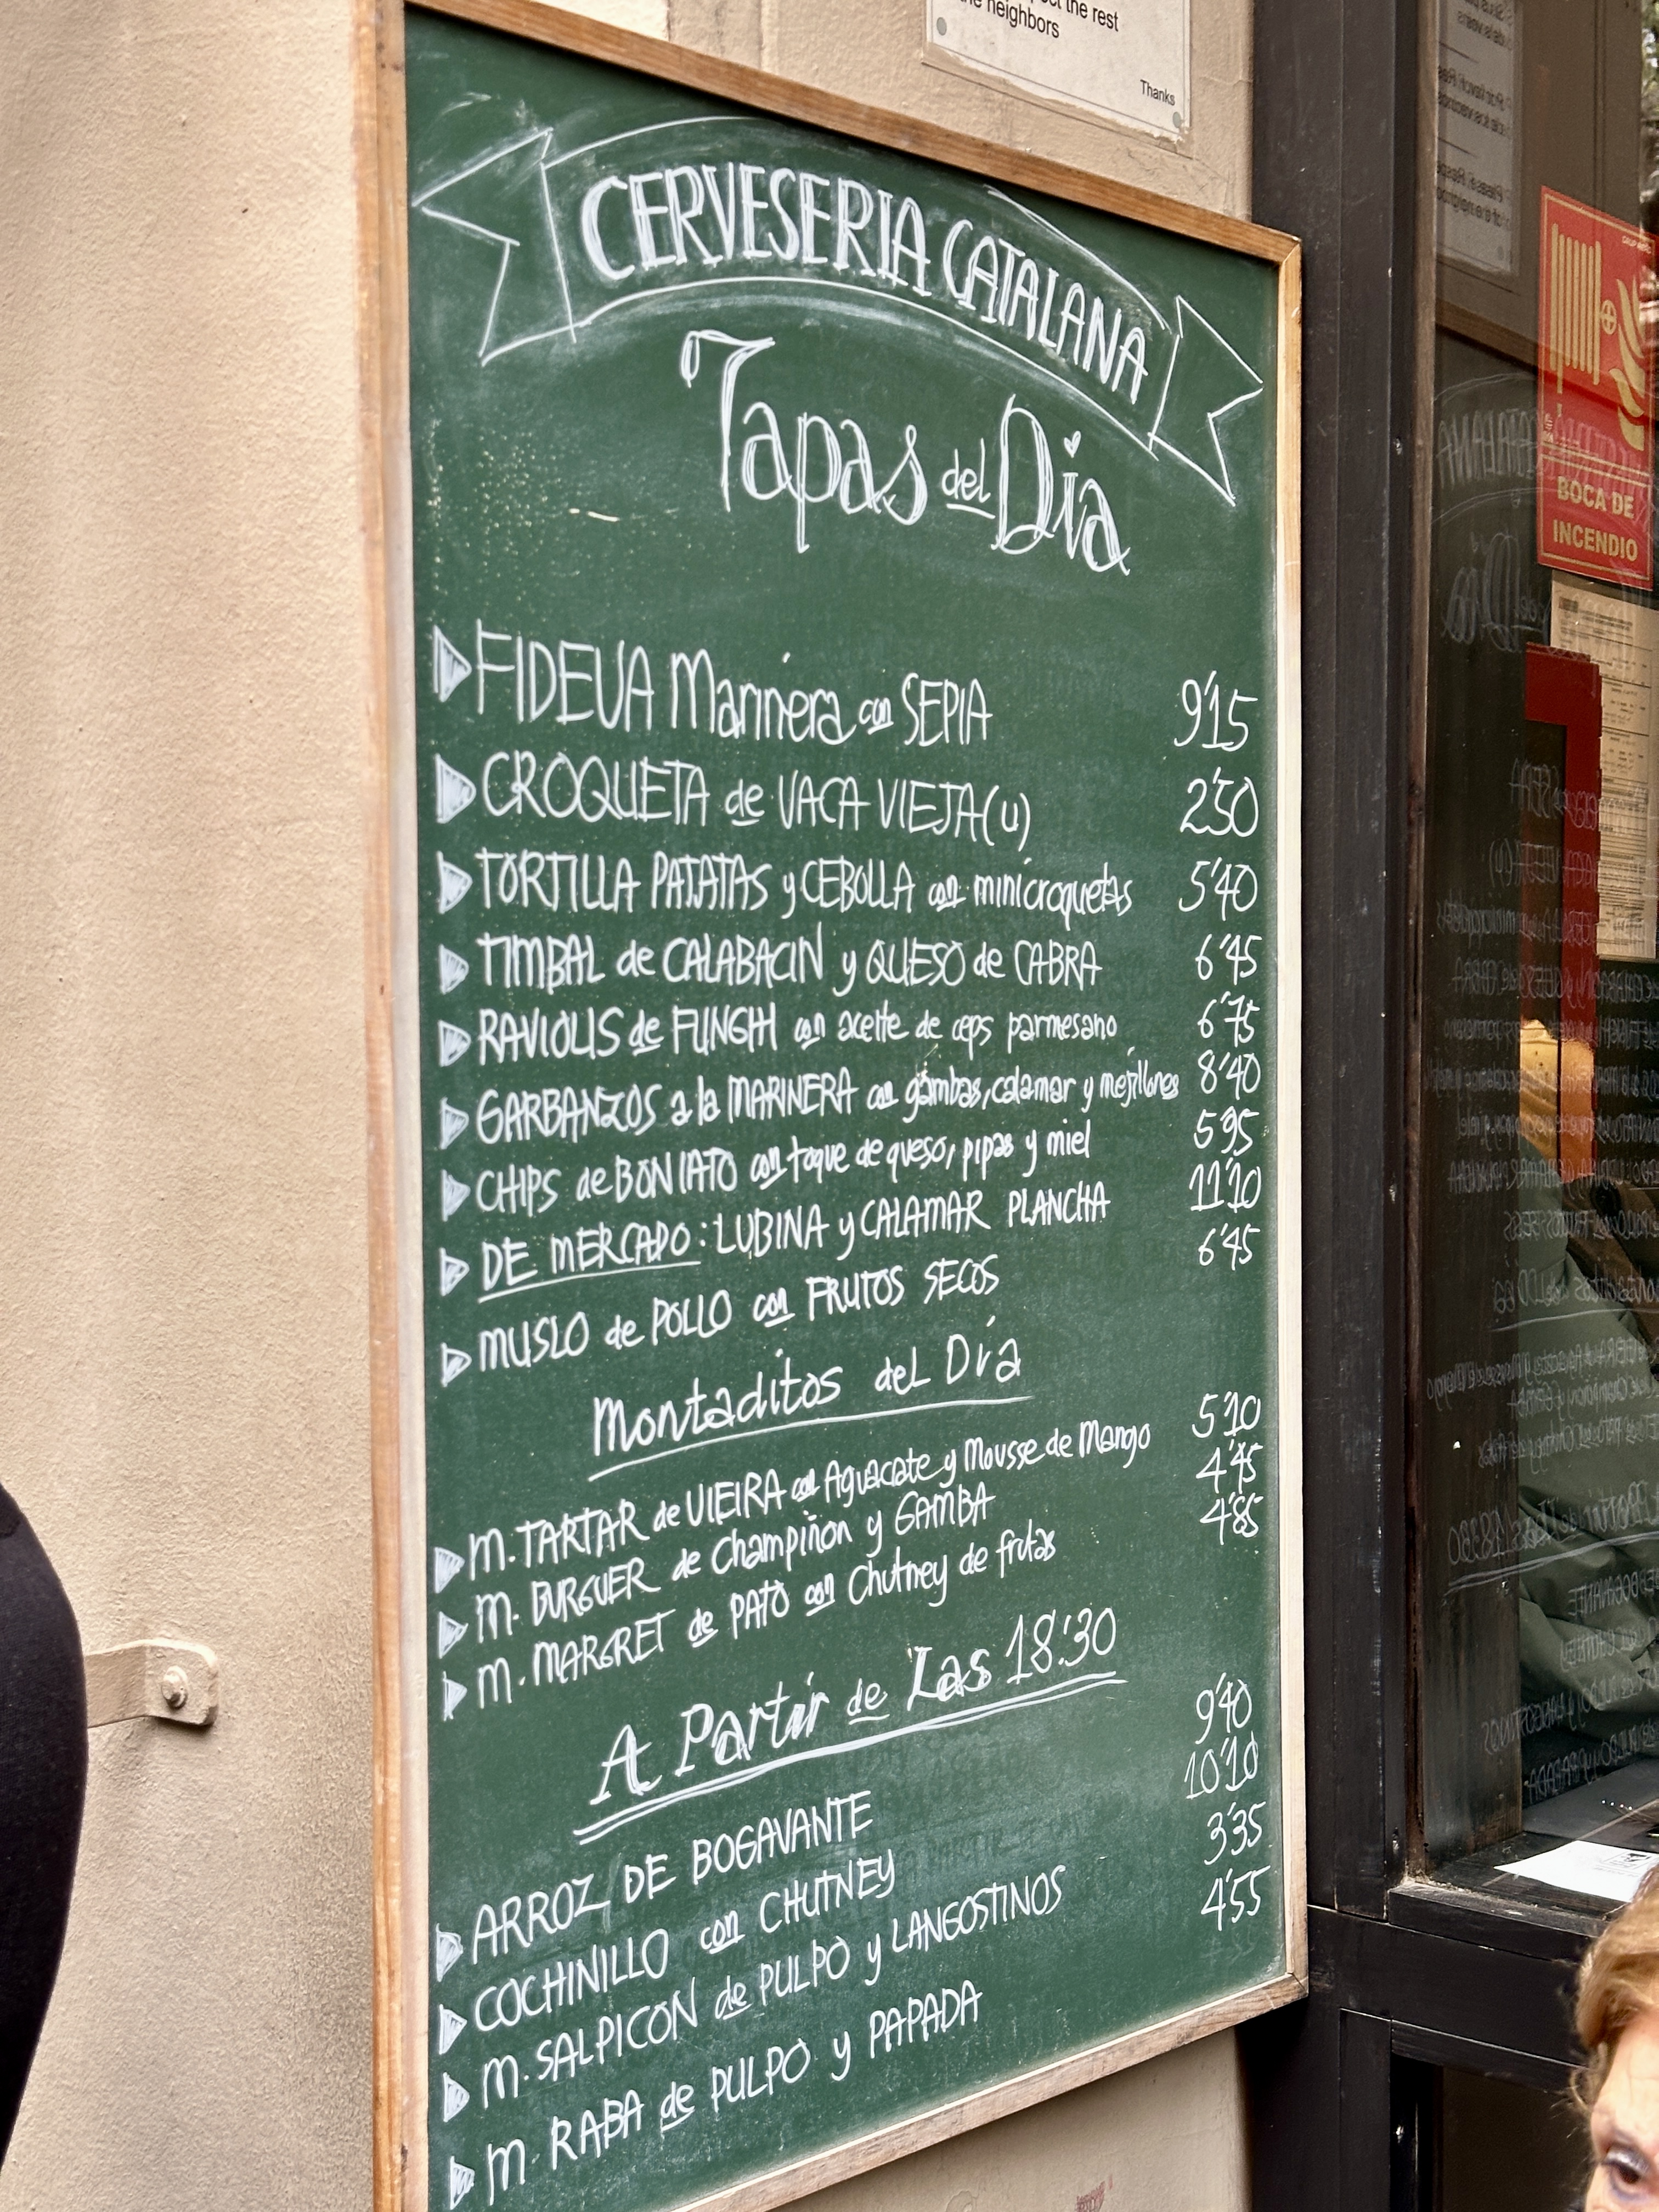 ect the rest
the neighbors
Thanks
CERVESERIA CATALANA
Tapas del Dia
FIDEUA Marinera con SEPIA 9'15
CROQUETA de VACA VIEJA (u) 2'50
TORTILLA PATATAS y CEBOLLA con minicroquetas 5'40
TIMBAL de CALABACIN y QUESO de CABRA 6'45
RAVIOLIS de FUNGHI con aceite de ceps parmesano 6'75
GARBANZOS a la MARINERA con gambas, calamar y mejillones 8'40
CHIPS de BONIATO con toque de queso, pipas y miel 5'95
DE MERCADO: LUBINA y CALAMAR PLANCHA 11'10
MUSLO de POLLO con FRUTOS SECOS 6'45
Montaditos del Día
M. TARTAR de VIEIRA con Aguacate y Mousse de Mango 5'10
M. BURGUER de Champiñon y GAMBA 4'45
M. MARGRET de PATO con Chutney de frutas 4'85
A Partir de Las 18:30
ARROZ DE BOGAVANTE 9'40
COCHINILLO con CHUTNEY 10'10
M. SALPICON de PULPO y LANGOSTINOS 3'35
M. RABA de PULPO y PAPADA 4'55
BOCA DE
INCENDIO